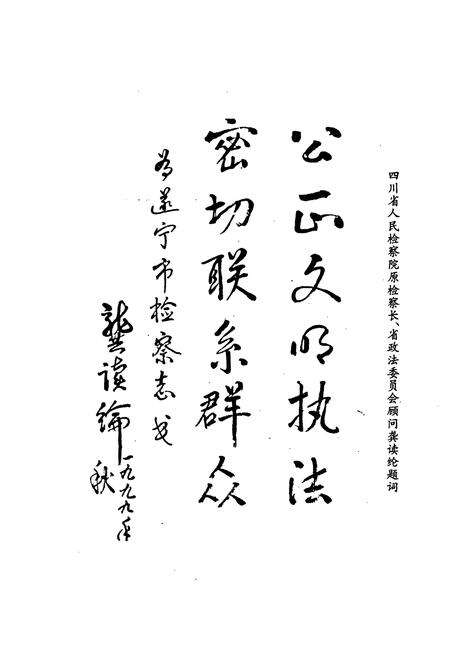 四川省人民检察院原检察长、省政法委员会顾问龚读纶题词
公正文明执法
密切联系群众
为遂宁市检察志
龚读纶
一九九九年
秋